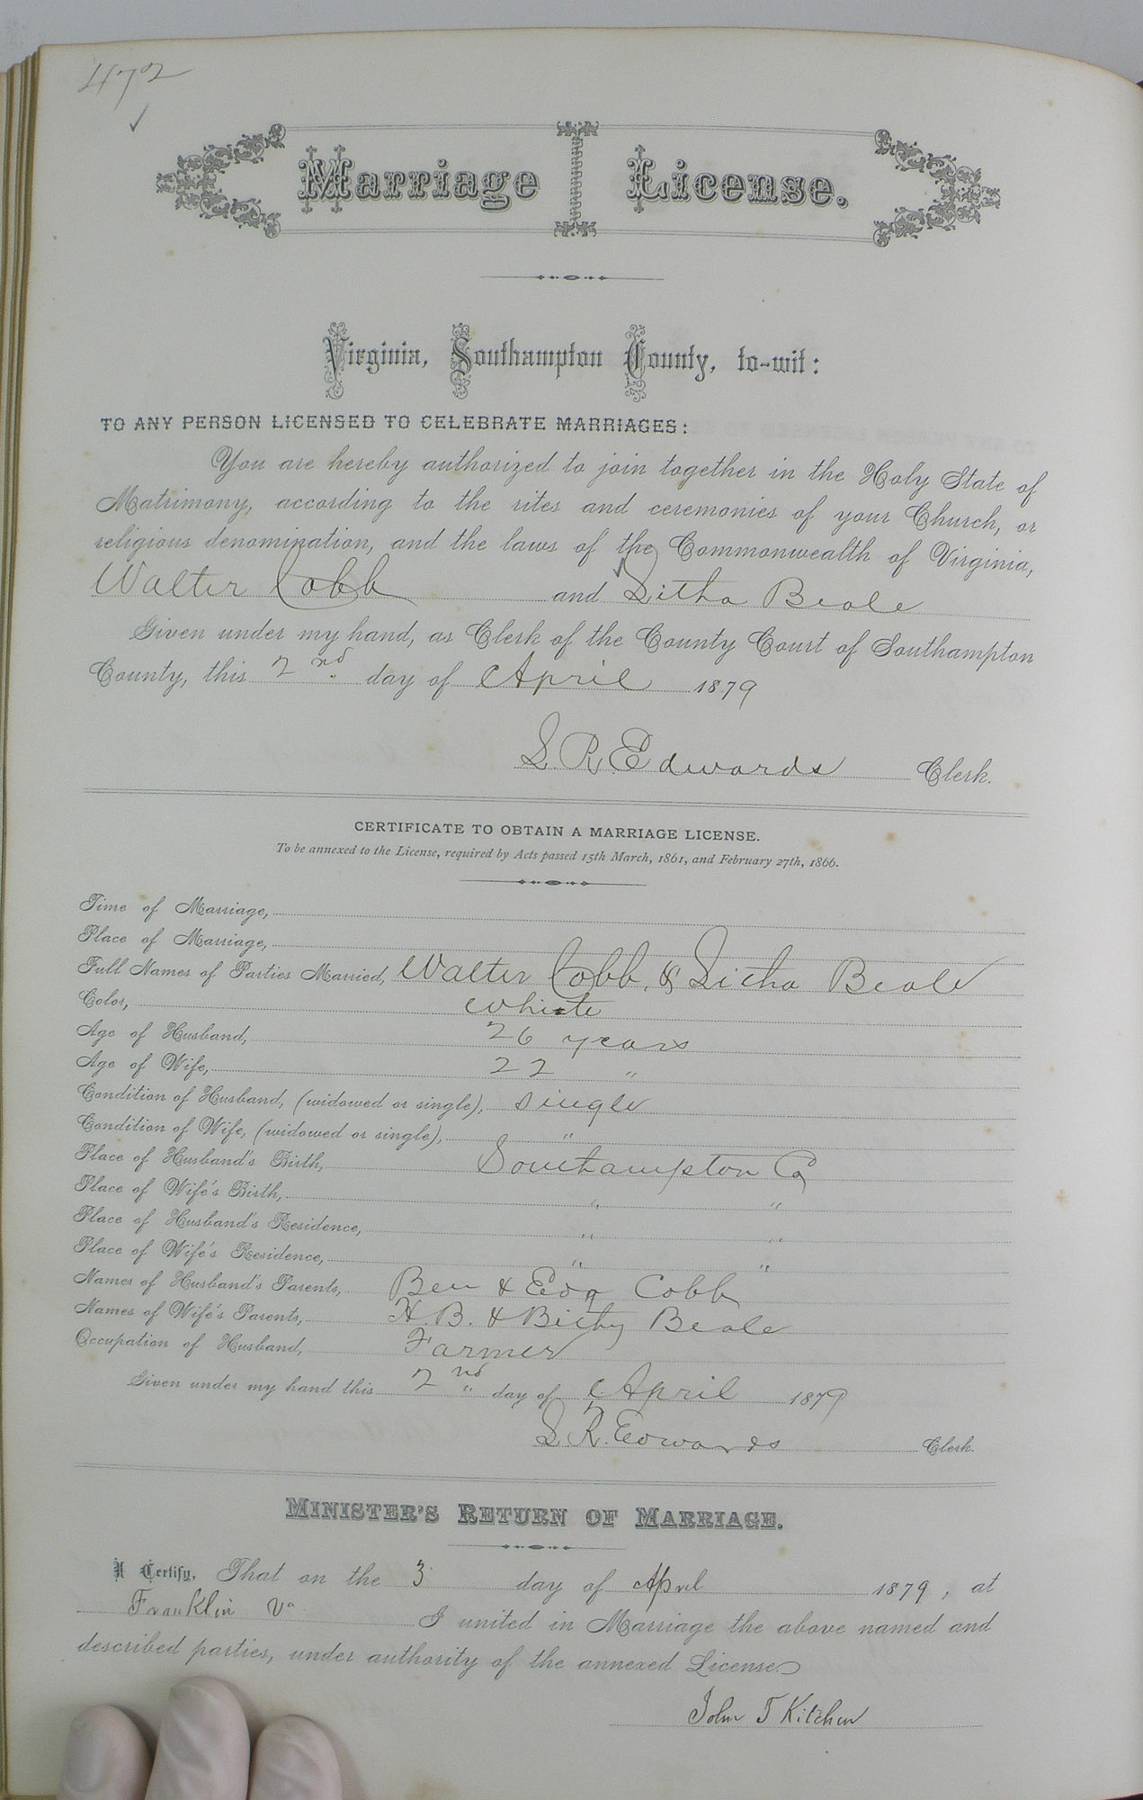 472
Marriage License.
Virginia, Southampton County, to-wit:
TO ANY PERSON LICENSED TO CELEBRATE MARRIAGES:
You are hereby authorized to join together in the Holy State of
Matrimony, according to the rites and ceremonies of your Church, or
religious denomination, and the laws of the Commonwealth of Virginia,
Walter Cobb and Litha Beale
Given under my hand, as Clerk of the County Court of Southampton
County, this 2nd day of April 1879
L R. Edwards Clerk.
CERTIFICATE TO OBTAIN A MARRIAGE LICENSE.
To be annexed to the License, required by Acts passed 15th March, 1861, and February 27th, 1866.
Time of Marriage,
Place of Marriage,
Full Names of Parties Married, Walter Cobb, & Litha Beale
Color, White
Age of Husband, 26 years
Age of Wife, 22 "
Condition of Husband, (widowed or single), Single
Condition of Wife, (widowed or single), "
Place of Husband's Birth, Southampton Co
Place of Wife's Birth, " "
Place of Husband's Residence, " "
Place of Wife's Residence, " "
Names of Husband's Parents, Ben & Cobb
Names of Wife's Parents, H. B. & Beale
Occupation of Husband, Farmer
Given under my hand this 2nd day of April 1879
L R. Edwards Clerk.
MINISTER'S RETURN OF MARRIAGE.
I Certify, That on the 3 day of April 1879, at
Franklin Va I united in Marriage the above named and
described parties, under authority of the annexed License
John T Kitchen